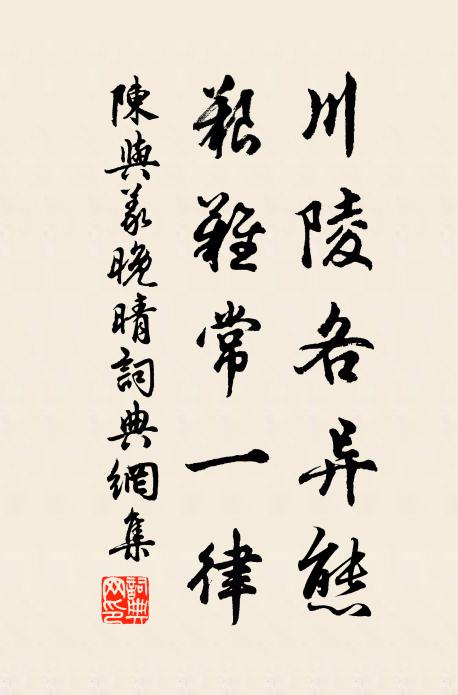 川陵各异態
艱難常一律
陳與義晚晴詞典網集
詞典网印